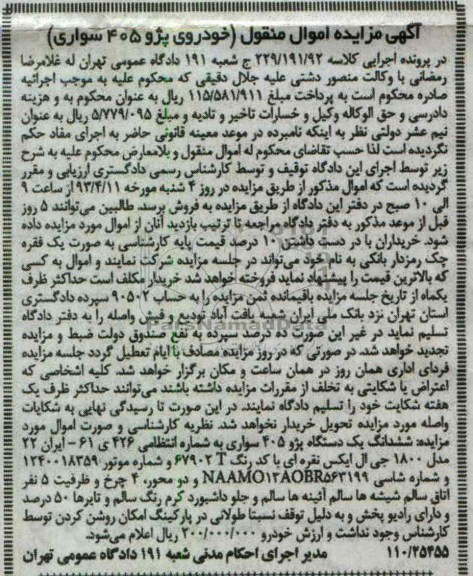 آگهی مزایده اموال منقول (خودروی پژو ۴۰۵ سواری)
در پرونده اجرایی کلاسه ۲۲۹/۱۹۱/۹۲ ج شعبه ۱۹۱ دادگاه عمومی تهران له غلامرضا
رمضانی با وکالت منصور دشتی علیه جلال دقیقی که محکوم علیه به موجب اجرائیه
صادره محکوم است به پرداخت مبلغ ۱۱۵/۵۸۱/۹۱۱ ریال به عنوان محکوم به و هزینه
دادرسی و حق الوکاله وکیل و خسارات تاخیر و تادیه و مبلغ ۵/۷۷۹/۰۹۵ ریال به عنوان
نیم عشر دولتی نظر به اینکه نامبرده در موعد معینه قانونی حاضر به اجرای مفاد حکم
نگردیده است لذا حسب تقاضای محکوم له اموال منقول و بلامعارض محکوم علیه به شرح
زیر توسط اجرای این دادگاه توقیف و توسط کارشناس رسمی دادگستری ارزیابی و مقرر
گردیده است که اموال مذکور از طریق مزایده در روز ۴ شنبه مورخه ۹۳/۴/۱۱ از ساعت ۹
الی ۱۰ صبح در دفتر این دادگاه از طریق مزایده به فروش برسد. طالبین می‌توانند ۵ روز
قبل از موعد مذکور به دفتر دادگاه مراجعه تا ترتیب بازدید آنان از اموال مورد مزایده داده
شود. خریداران با در دست داشتن ۱۰ درصد قیمت پایه کارشناسی به صورت یک فقره
چک رمزدار بانکی به نام خود می‌تواند در جلسه مزایده شرکت نمایند و اموال به کسی
که بالاترین قیمت را پیشنهاد نماید فروخته خواهد شد خریدار مکلف است حداکثر ظرف
یکماه از تاریخ جلسه مزایده باقیمانده ثمن مزایده را به حساب ۹۰۵۰۲ سپرده دادگستری
استان تهران نزد بانک ملی ایران شعبه یافت آباد تودیع و فیش واصله را به دفتر دادگاه
تسلیم نماید در غیر این صورت ده درصد سپرده به نفع صندوق دولت ضبط و مزایده
تجدید خواهد شد. در صورتی که در روز مزایده مصادف با ایام تعطیل گردد جلسه مزایده
فردای اداری همان روز در همان ساعت و مکان برگزار خواهد شد. کلیه اشخاصی که
اعتراض یا شکایتی به تخلف از مقررات مزایده داشته باشند می‌توانند حداکثر ظرف یک
هفته شکایت خود را تسلیم دادگاه نمایند. در این صورت تا رسیدگی نهایی به شکایات
واصله مورد مزایده تحویل خریدار نخواهد شد. نظریه کارشناسی و صورت اموال مورد
مزایده: ششدانگ یک دستگاه پژو ۴۰۵ سواری به شماره انتظامی ۴۲۶ ی ۶۱ - ایران ۲۲
مدل ۱۸۰۰ جی ال ایکس نقره ای با کد رنگ ۶۷۹۰۲ T و شماره موتور ۱۲۴۰۰۱۸۳۵۹
و شماره شاسی NAAM۰۱۲A۰BR۵۶۳۱۹۹ و دو محور، ۴ چرخ و ظرفیت ۵ نفر
اتاق سالم شیشه ها سالم آئینه ها سالم و جلو داشبورد کرم رنگ سالم و تایرها ۵۰ درصد
و دارای رادیو پخش و به دلیل توقف نسبتا طولانی در پارکینگ امکان روشن کردن توسط
کارشناس وجود نداشت و ارزش خودرو ۲۰۰/۰۰۰/۰۰۰ ریال اعلام می‌شود.
۱۱۰/۲۵۴۵۵ مدیر اجرای احکام مدنی شعبه ۱۹۱ دادگاه عمومی تهران
ParsNamadData